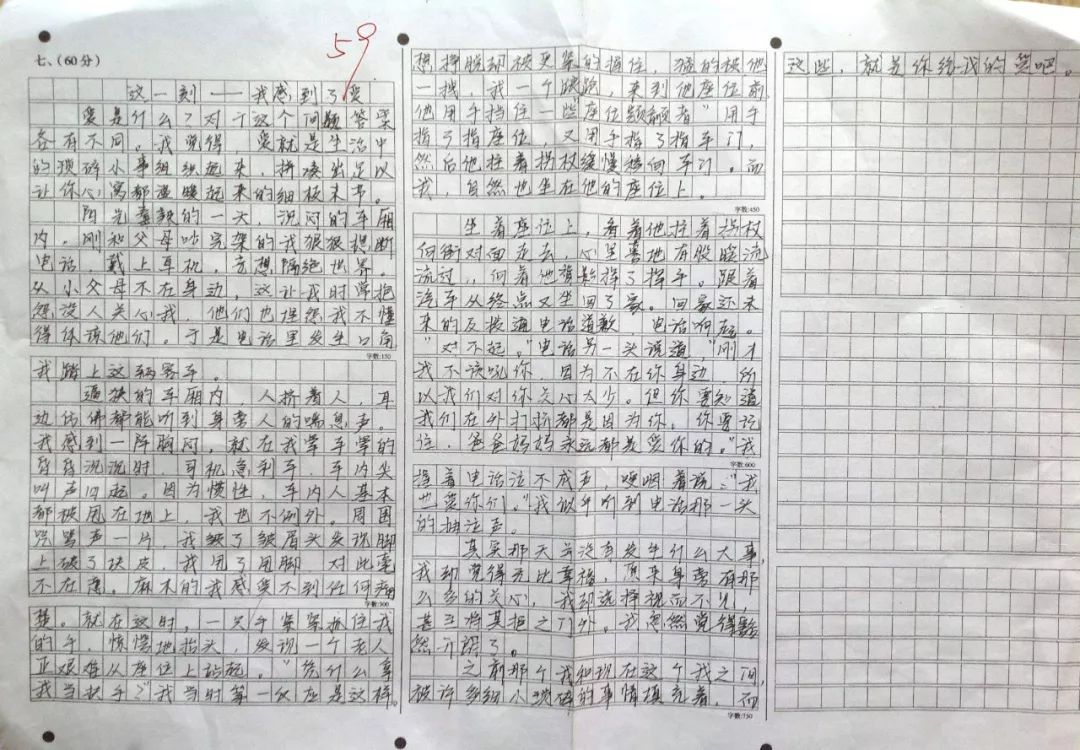 七、(60分)
59
这一刻——我感到了爱
爱是什么？对于这个问题答案
各有不同。我觉得，爱就是生活中
的琐碎小事组织起来，拼凑出足以
让你心窝都温暖起来的细枝末节。
阳光毒辣的一天，沉闷的车厢
内。刚和父母吵完架的我狠狠挂断
电话，戴上耳机，妄想隔绝世界。
从小父母不在身边，这让我时常抱
怨没人关心我，他们也埋怨我不懂
得体谅他们。于是电话里发生口角
字数:150
我踏上这辆客车。
逼狭的车厢内，人挤着人，耳
边仿佛都能听到身旁人的喘息声。
我感到一阵胸闷，就在我掌车掌的
昏昏沉沉时，司机急刹车，车内尖
叫声四起。因为惯性，车内人基本
都被甩在地上，我也不例外。周围
骂声一片，我皱了皱眉头发现脚
上破了块皮，我甩了甩脚，对此毫
不在意。麻木的我感受不到任何痛
字数:300
楚。就在这时，一只手紧紧抓住我
的手，惊慌地抬头，发现一个老人
正艰难从座位上站起。“凭什么拿
我当扶手？”我当时第一反应是这样。
想挣脱却被更紧的握住，猛的被他
一拽，我一个踉跄，来到他座位前
他用手挡住一些“座位觊觎者”用手
指了指座位，又用手指了指车门，
然后他拄着拐杖缓慢移向车门。而
我，自然也坐在他的座位上。
字数:450
坐着座位上，看着他拄着拐杖
向街对面走去，心里莫地有股暖流
流过，向着他背影挥了挥手。跟着
汽车从终点又坐回了家。回家还未
来的及拨通电话道歉，电话响起。
“对不起。”电话另一头说道，“刚才
我不该吼你，因为不在你身边，所
以我们对你关心太少。但你要知道
我们在外打拼都是因为你，你要记
住，爸爸妈妈永远都是爱你的。”我
字数:600
握着电话泣不成声，哽咽着说：“我
也爱你们。”我似乎听到电话那一头
的抽泣声。
其实那天并没有发生什么大事，
我却觉得无比幸福，原来身旁有那
么多的关心，我却选择视而不见，
甚至将其拒之门外。我忽然觉得豁
然开朗了。
之前那个我和现在这个我之间，
被许多细小琐碎的事情填充着，而
字数:750
这些，就是你给我的爱吧。